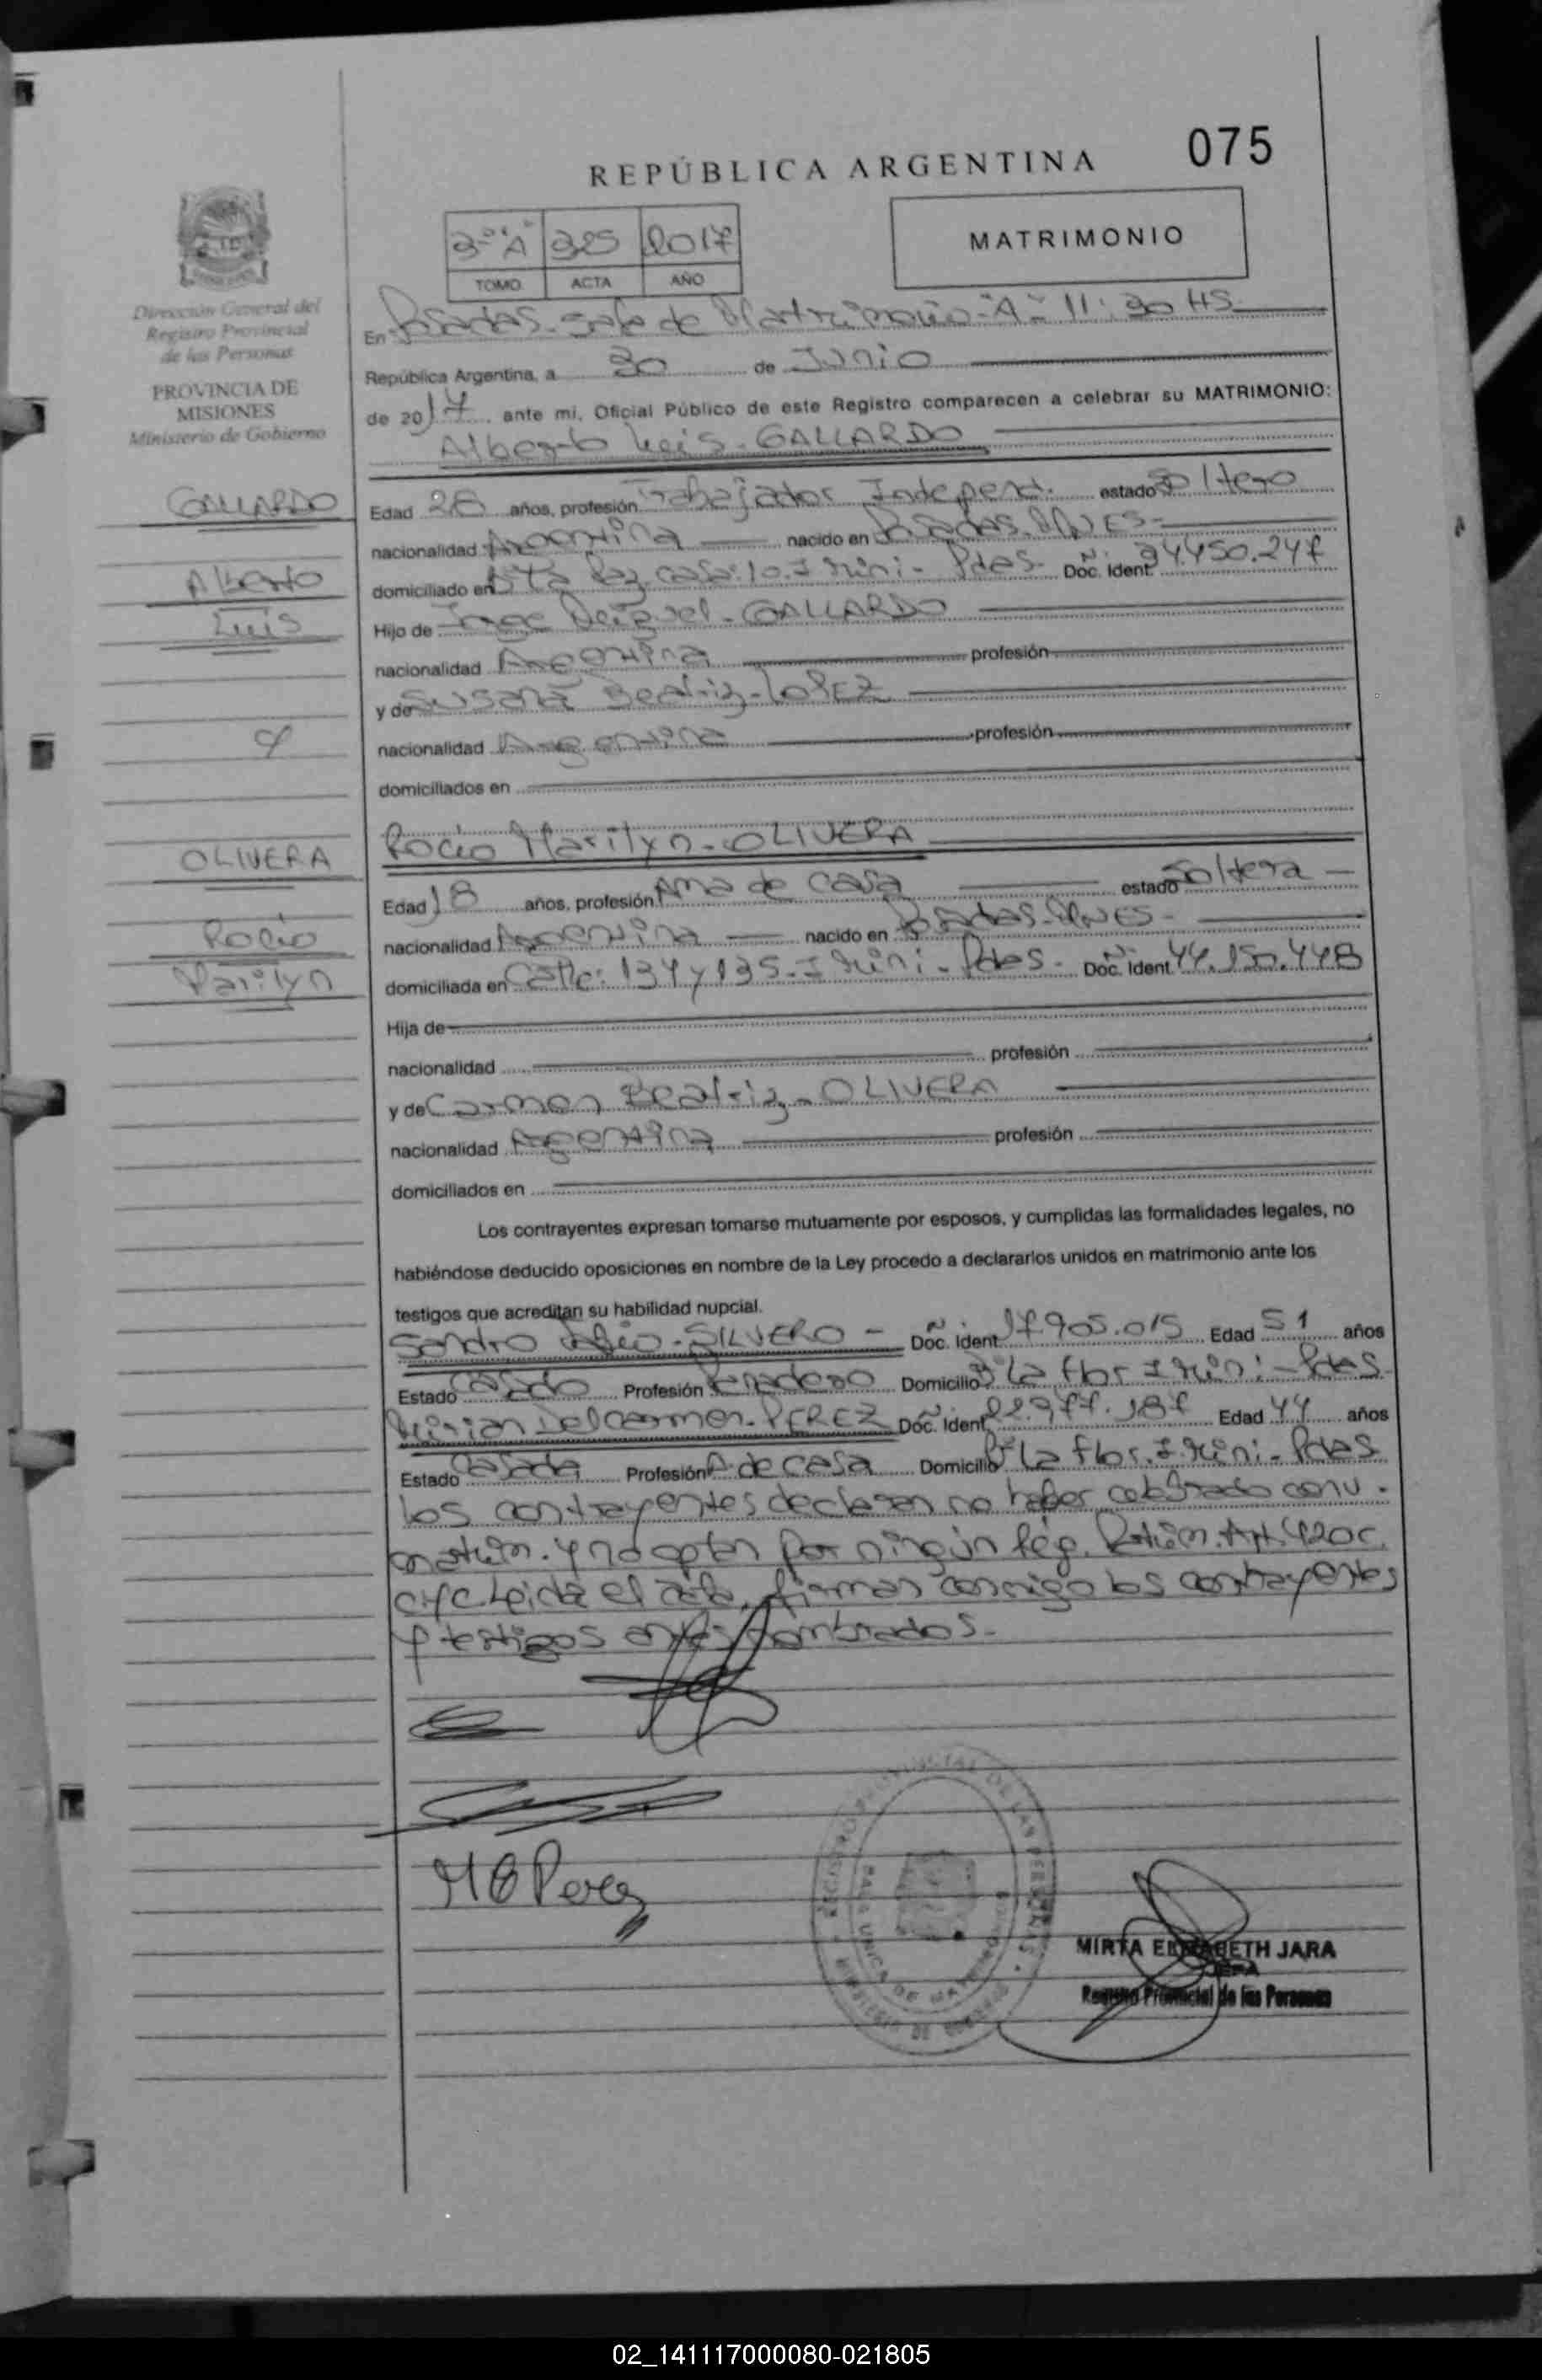 075
REPÚBLICA ARGENTINA
3º "A" 325 2017
MATRIMONIO
TOMO ACTA AÑO
Dirección General del
Registro Provincial
de las Personas
PROVINCIA DE
MISIONES
Ministerio de Gobierno
En Posadas - Sala de Matrimonio - "A" - 11:30 HS
República Argentina, a 30 de Junio
de 2017 ante mi, Oficial Público de este Registro comparecen a celebrar su MATRIMONIO:
Alberto Luis - GALLARDO
GALLARDO
Alberto
Luis
y
OLIVERA
Rocio
Marilyn
Edad 28 años, profesión Trabajador Independ. estado Soltero
nacionalidad Argentina nacido en Posadas. MNES -
domiciliado en Paz casa: 10. I - Pdas - Doc. Ident. 34.450.247
Hijo de Miguel - GALLARDO
nacionalidad Argentina profesión
y de Susana Beatriz - LOPEZ
nacionalidad Argentina profesión
domiciliados en
Rocio Marilyn - OLIVERA
Edad 18 años, profesión Ama de casa estado Soltera
nacionalidad Argentina nacido en Posadas - MNES -
domiciliada en Calle: 134 y 135 - I - Pdas - Doc. Ident. 44.150.448
Hija de
nacionalidad profesión
y de Carmen Beatriz - OLIVERA
nacionalidad Argentina profesión
domiciliados en
Los contrayentes expresan tomarse mutuamente por esposos, y cumplidas las formalidades legales, no
habiéndose deducido oposiciones en nombre de la Ley procedo a declararlos unidos en matrimonio ante los
testigos que acreditan su habilidad nupcial.
Sandro - SILVERO - Doc. Ident. 17.905.015 Edad 51 años
Estado Casado Profesión Domicilio la Flor I - Pdas
Mirian Del Carmen - PEREZ Doc. Ident. 22.977.187 Edad 44 años
Estado Casada Profesión A de casa Domicilio la Flor. I - Pdas
los contrayentes declaran no haber celebrado conv.
matrim. y no optan por ningún Rég. Art. 420 c.
cyc Leida el acta, firman conmigo los contrayentes
y testigos antes nombrados.
M Perez
REGISTRO PROVINCIAL DE LAS PERSONAS
SALA UNICA DE MATRIMONIOS
MINISTERIO DE GOBIERNO
MIRTA ELIZABETH JARA
JEFA
Registro Provincial de las Personas
02_141117000080-021805